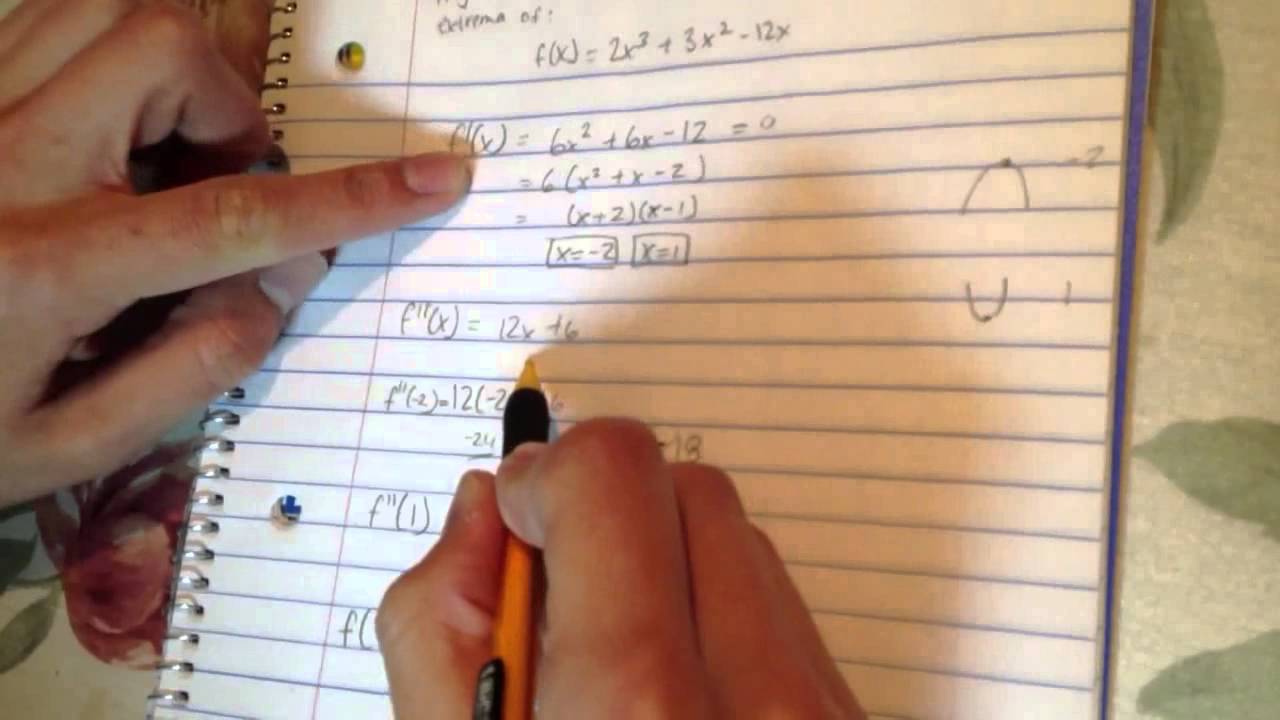 extrema of:
f(x) = 2x³ + 3x² - 12x
f'(x) = 6x² + 6x - 12 = 0
= 6(x² + x - 2)
-2
= (x+2)(x-1)
x=-2 x=1
1
f''(x) = 12x + 6
f''(-2)=12(-2 6
-24 -18
f''(1)
f(